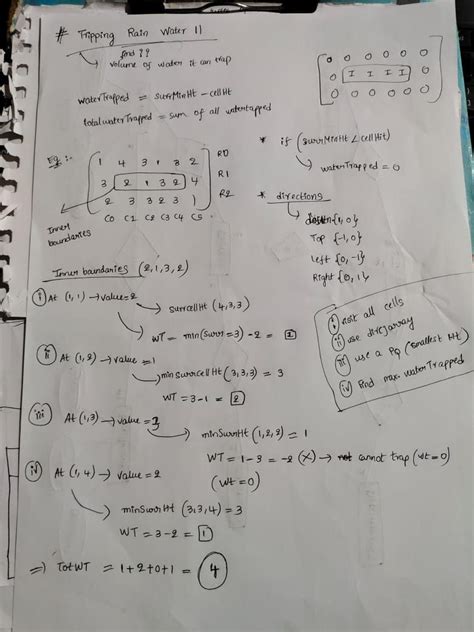 # Tripping Rain Water 11
find ??
volume of water it can trap
0 0 0 0 0 0
0 I I I I 0
0 0 0 0 0 0
waterTrapped = surrMinHt - cellHt
total waterTrapped = sum of all watertapped
* if (surrMinHt < cellHt)
waterTrapped = 0
Eg :-
1 4 3 1 3 2 R0
3 2 1 3 2 4 R1
2 3 3 2 3 1 R2
C0 C1 C2 C3 C4 C5
Inner boundaries
* directions
down {1, 0}
Top {-1, 0}
left {0, -1}
Right {0, 1}
Inner boundaries (2,1,3,2)
i) At (1,1) → value = 2
surrcellHt (4,3,3)
WT = min(surr=3) - 2 = 1
ii) At (1,2) → value = 1
min surrcellHt (3,3,3) = 3
WT = 3-1 = 2
iii) At (1,3) → value = 3
minSurrHt (1,2,2) = 1
WT = 1-3 = -2 (X) → cannot trap (wt=0)
(Wt=0)
iv) At (1,4) → value = 2
minSurrHt (3,3,4) = 3
WT = 3-2 = 1
⇒ TotWT = 1+2+0+1 = 4
i) visit all cells
ii) use dir[] array
iii) use a PQ (smallest Ht)
iv) Find max waterTrapped